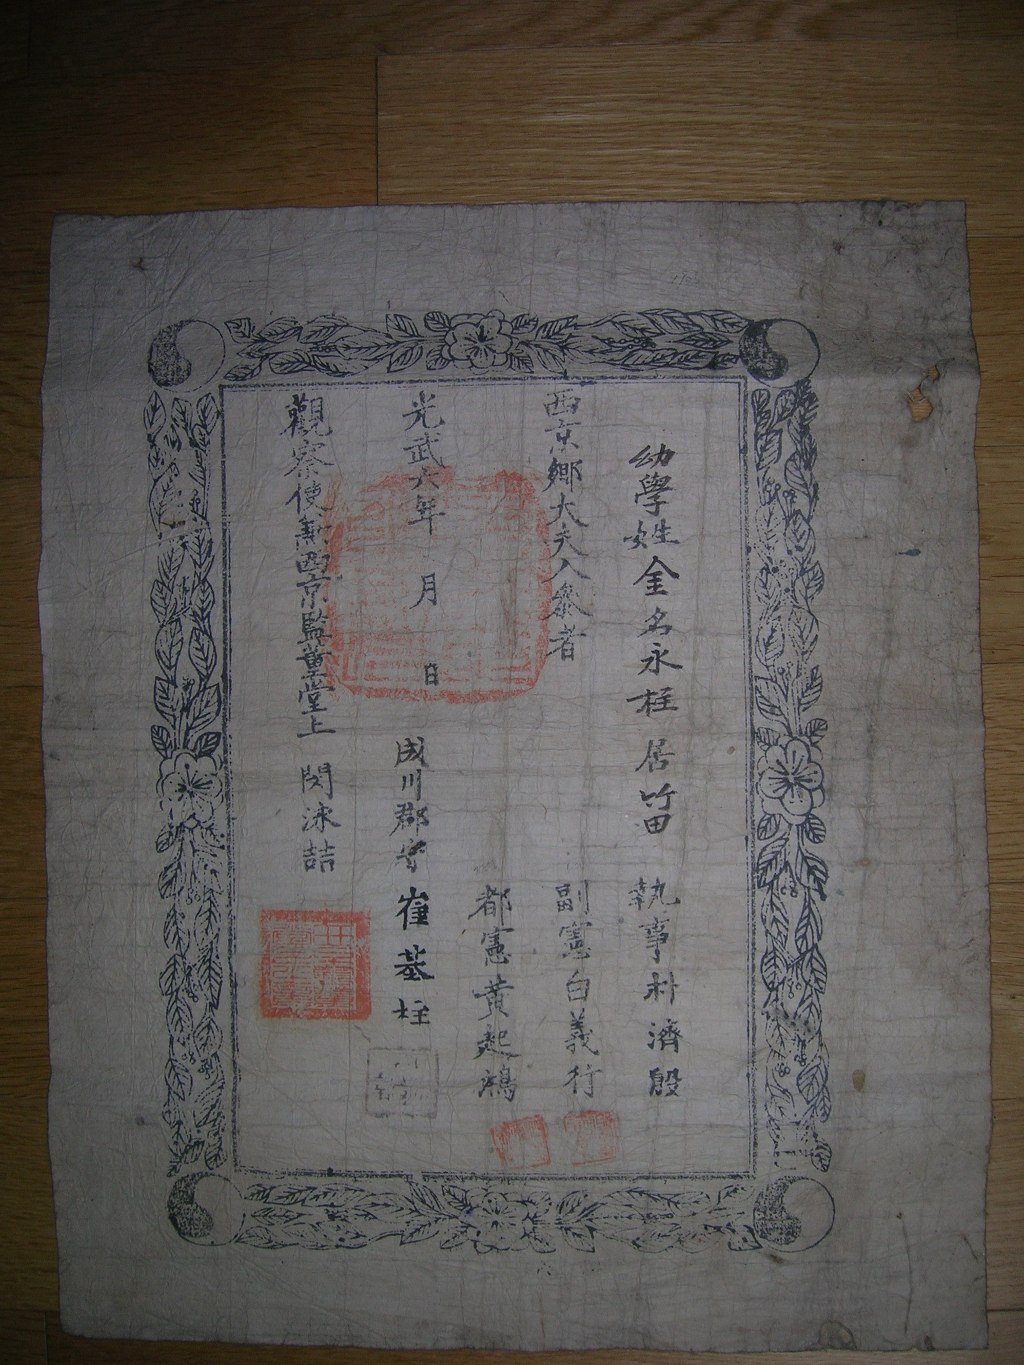 幼學姓金名永柱 居竹田 執事朴濟殷
西京鄉大夫入叅者 副憲白義行
都憲黃起鴻
光武六年 月 日 成川郡守崔基柱
觀察使兼西京監董堂上 閔泳喆